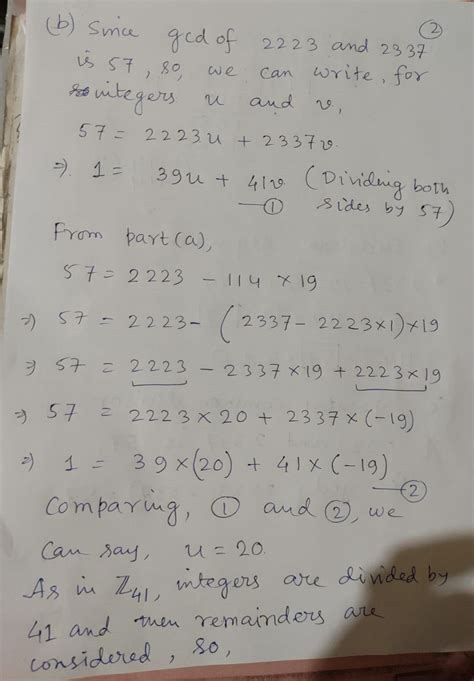 (b) Since gcd of 2223 and 2337 ②
is 57, so, we can write, for
integers u and v,
57 = 2223u + 2337v.
⇒ 1 = 39u + 41v (Dividing both
—① sides by 57)
From part (a),
57 = 2223 - 114 × 19
⇒ 57 = 2223 - (2337 - 2223×1)×19
⇒ 57 = 2223 - 2337×19 + 2223×19
⇒ 57 = 2223×20 + 2337×(-19)
⇒ 1 = 39×(20) + 41×(-19)
—②
Comparing, ① and ②, we
can say, u = 20.
As in ℤ41, integers are divided by
41 and then remainders are
considered, so,